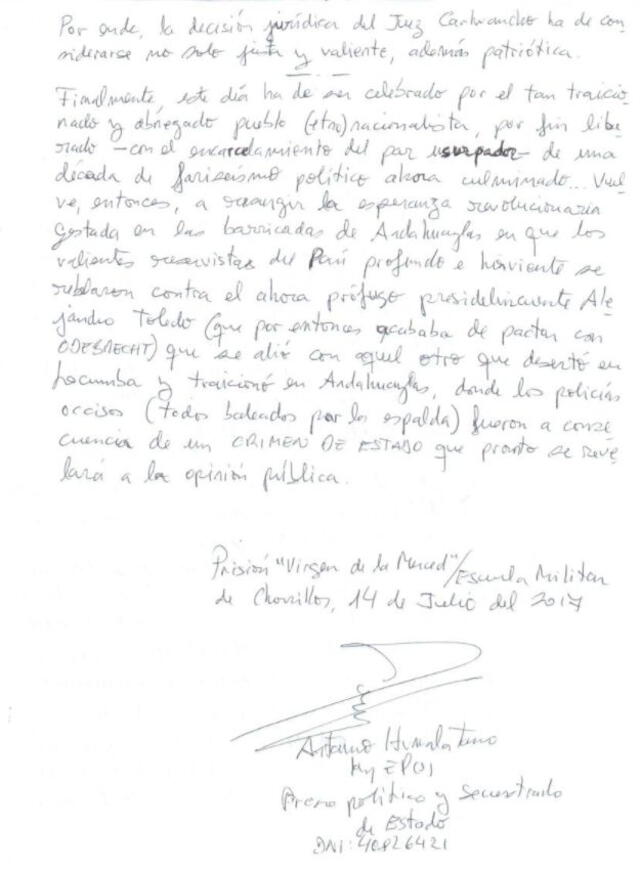 Por ende, la decisión jurídica del Juez Carhuancho ha de con
siderarse no solo justa y valiente, además patriótica.
Finalmente, este día ha de ser celebrado por el tan traicio
nado y abnegado pueblo (etno)nacionalista, por fin libe
rado -con el encarcelamiento del par usurpador- de una
década de fariseísmo político ahora culminado... Vuel
ve, entonces, a resurgir la esperanza revolucionaria
gestada en las barricadas de Andahuaylas en que los
valientes reservistas del Perú profundo e hirviente se
reblaron contra el ahora prófugo presidelincuente Ale
jandro Toledo (que por entonces acababa de pactar con
ODEBRECHT) que se alió con aquel otro que desertó en
Locumba y traicionó en Andahuaylas, donde los policías
occisos (todos baleados por la espalda) fueron a conse
cuencia de un CRIMEN DE ESTADO que pronto se reve
lará a la opinión pública.
Prisión "Virgen de la Merced"/Escuela Militar
de Chorrillos, 14 de Julio del 2017
Antauro Humala Tasso
My EP(r)
Preso político y secuestrado
de Estado
DNI: 40826421